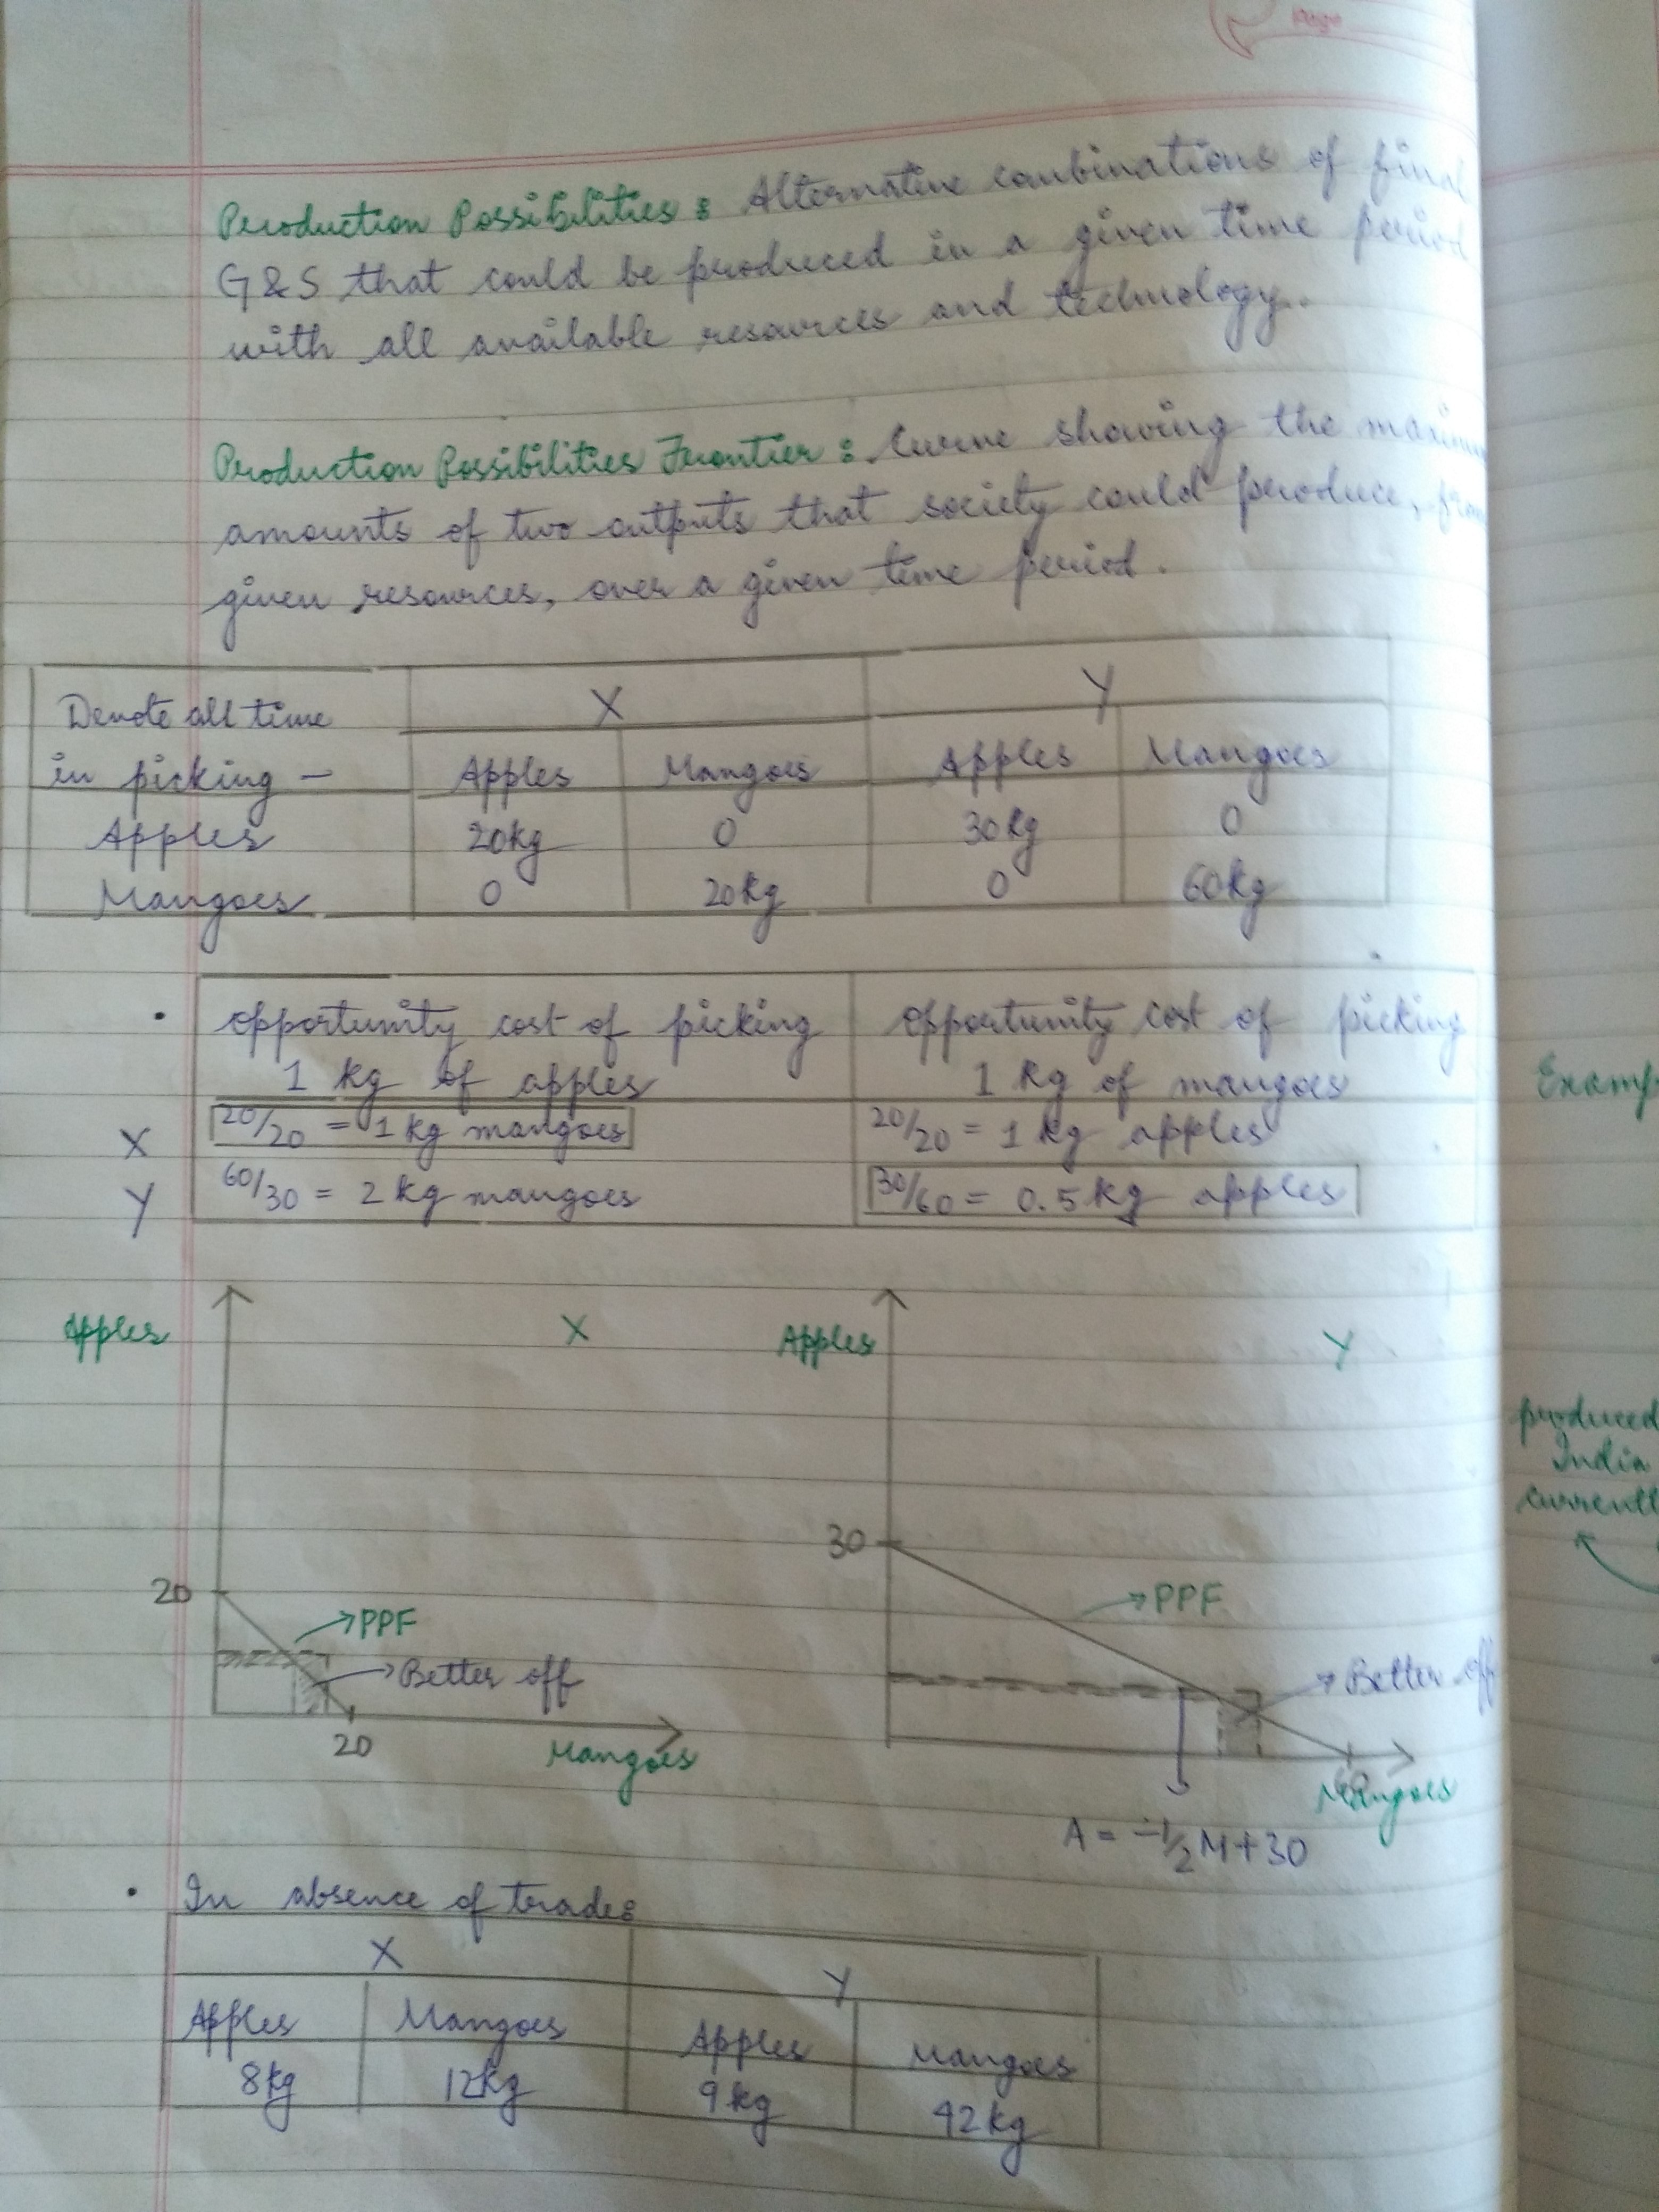 Page
Production Possibilities : Alternative combinations of final
G&S that could be produced in a given time period
with all available resources and technology.
Production Possibilities Frontier : Curve showing the
amounts of two outputs that society could produce,
given resources, over a given time period.
Denote all time in picking – X Y
Apples Mangoes Apples Mangoes
Apples 20kg 0 30kg 0
Mangoes 0 20kg 0 60kg
opportunity cost of picking 1 kg of apples
opportunity cost of picking 1 kg of mangoes
X 20/20 = 1 kg mangoes 20/20 = 1 kg apples
Y 60/30 = 2 kg mangoes 30/60 = 0.5 kg apples
Apples X
20
PPF
Better off
20
Mangoes
Apples Y
30
PPF
Better off
Mangoes
A = -1/2 M + 30
• In absence of trade:
X Y
Apples Mangoes Apples Mangoes
8kg 12kg 9kg 42kg
produced
India